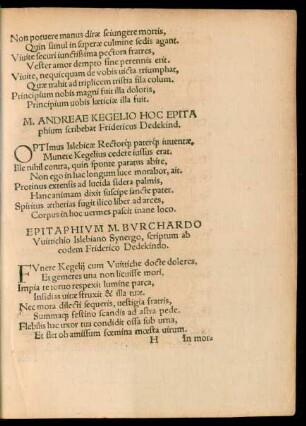 Non potuere manus diræ seiungere mortis,
Quin simul in superæ culmine sedis agant.
Viuite securi iunctissima pectora fratres,
Vester amor dempto fine perennis erit.
Viuite, nequicquam de vobis uicta triumphat,
Quæ trahit ad triplicem tristia fila colum.
Principium nobis magni fuit illa doloris,
Principium uobis læticiæ illa fuit.
M. ANDREAE KEGELIO HOC EPITA
phium scribebat Fridericus Dedekind.
OPTImus Islebicæ Rectorq́; paterq́; iuuentæ,
Munere Kegelius cedere iussus erat.
Ille nihil contra, quin sponte paratus abire,
Non ego in hac longum luce morabor, ait.
Protinus extensis ad lucida sidera palmis,
Hanc animam dixit suscipe sancte pater.
Spiritus ætherias fugit ilico liber ad arces,
Corpus in hoc uermes pascit inane loco.
EPITAPHIVM M. BVRCHARDO
Vuittichio Islebiano Synergo, scriptum ab
eodem Friderico Dedekindo.
FVnere Kegelij cum Vuittiche docte doleres,
Et gemeres una non licuisse mori,
Impia te toruo respexit lumine parca,
Insidias uitæ struxit & illa tuæ.
Nec mora dilecti sequeris, uestigia fratris,
Summaq́; festino scandis ad astra pede.
Flebilis hac uxor tua condidit ossa sub urna,
Et flet ob amissum fœmina mœsta uirum.
H In mor